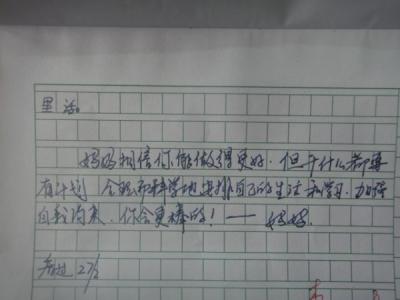 里 活。
妈妈相信你能做得更好。但干什么都要
有计划 合理和科学地安排自己的生活和学习。加强
自我约束。你会更棒的！—— 妈妈.
27/2